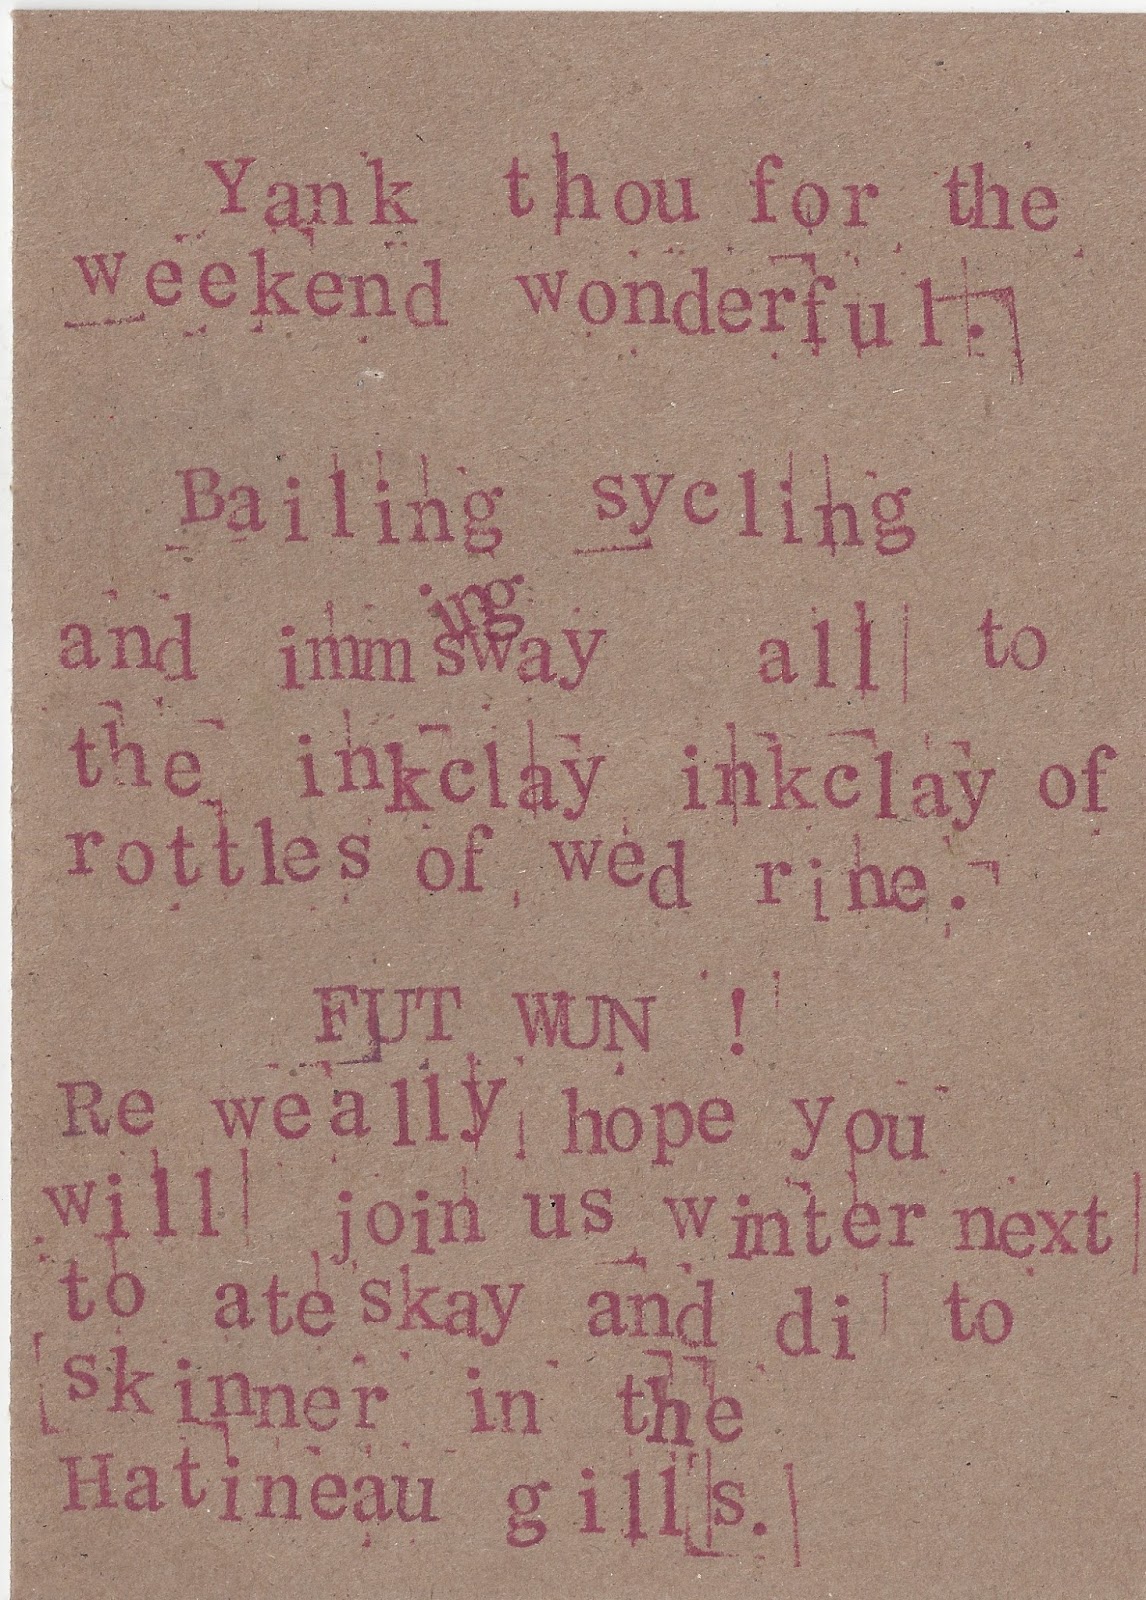 Yank thou for the
weekend wonderful.
Bailing sycling
and immswaying all to
the inkclay inkclay of
rottles of wed rine.
FUT WUN !
Re weally hope you
will join us winter next
to ate skay and di to
skinner in the
Hatineau gills.